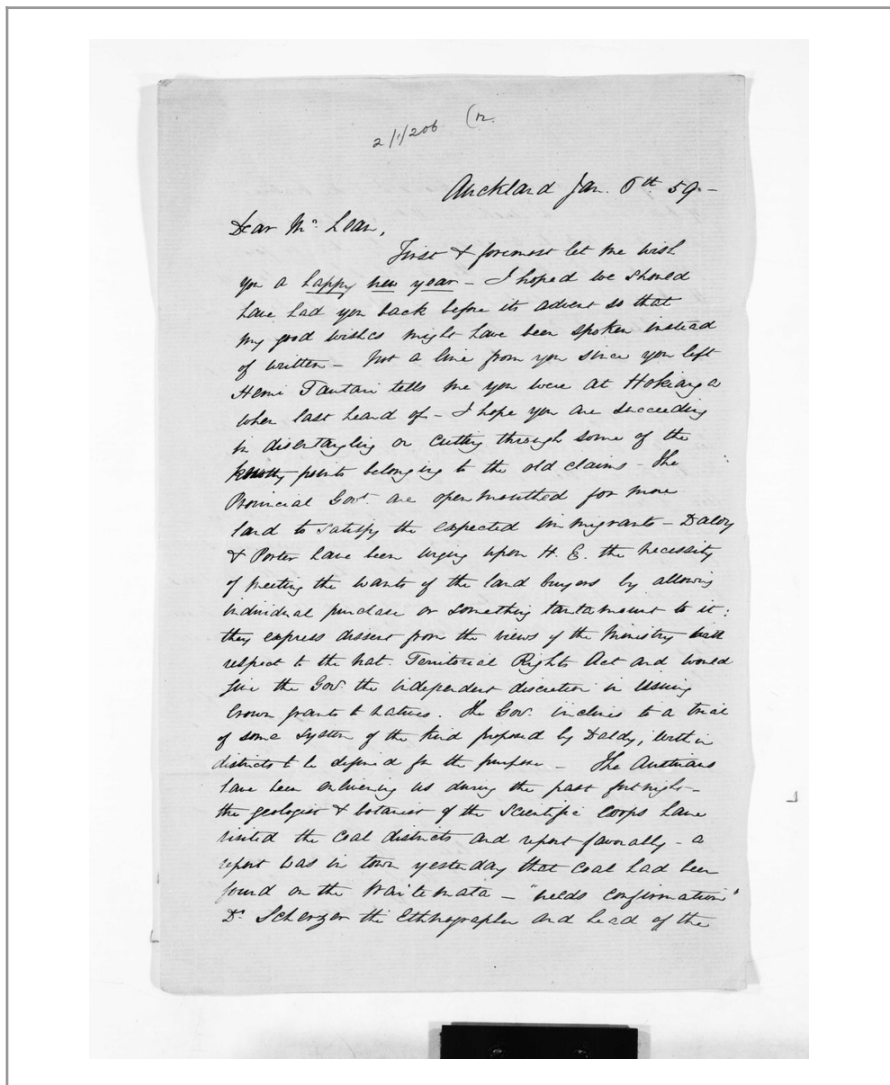 2/1/206 (12.
Auckland Jan. 6th 59 -
Dear Mc Lean,
First & foremost let me wish
you a happy new year - I hoped we should
have had you back before its advent so that
my good wishes might have been spoken instead
of written - Not a line from you since you left
Hemi Tautari tells me you were at Hokianga
when last heard of - I hope you are succeeding
in disentangling or cutting through some of the
knotty points belonging to the old claims - The
Provincial Govt. are open mouthed for more
land to satisfy the expected immigrants - Daldy
& Porter have been urging upon H. E. the necessity
of meeting the wants of the land buyers by allowing
individual purchase or something tantamount to it:
they express dissent from the views of the Ministry with
respect to the Nat. Territorial Rights Act and would
give the Govr. the independent discretion in issuing
Crown grants to natives. The Govr. inclines to a trial
of some system of the kind proposed by Daldy, within
districts to be defined for the purpose - The Austrians
have been enlivening us during the past fortnight -
the geologist & botanist of the Scientific Corps have
visited the Coal districts and report favorably - a
report was in town yesterday that coal had been
found on the Waitemata - "needs confirmation"
Dr. Scherzer the Ethnographer and head of the